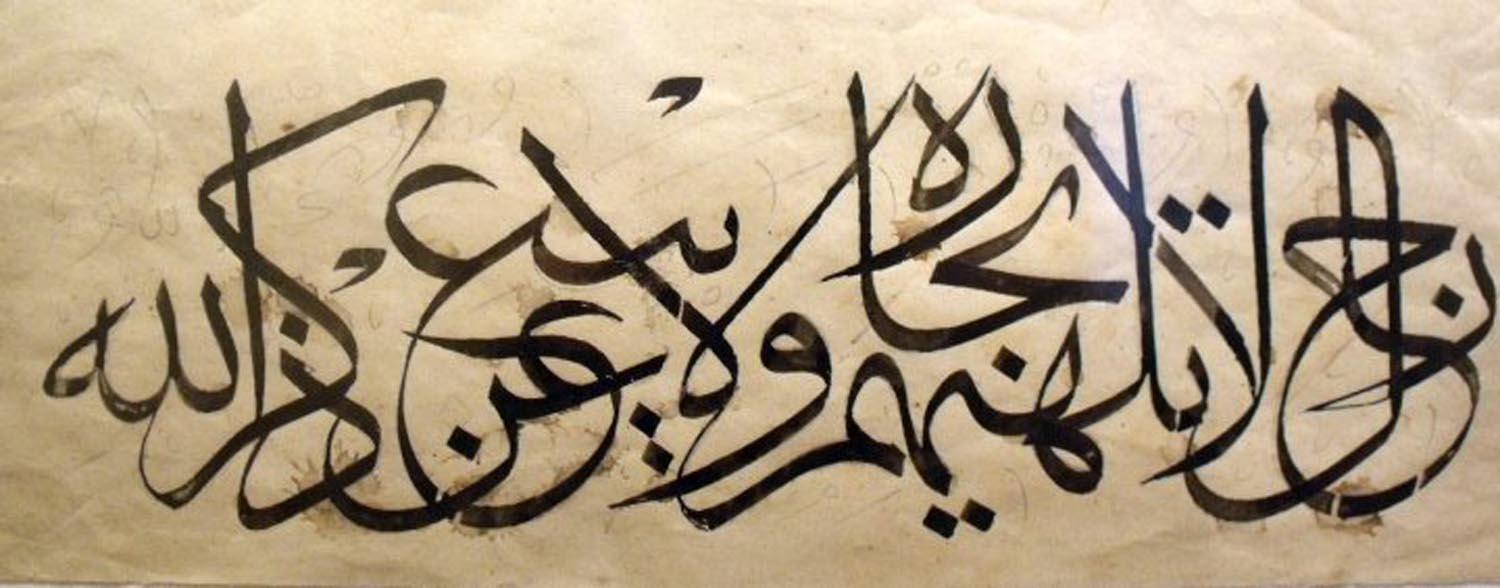 رجال لا تلهيهم تجارة ولا بيع عن ذكر الله